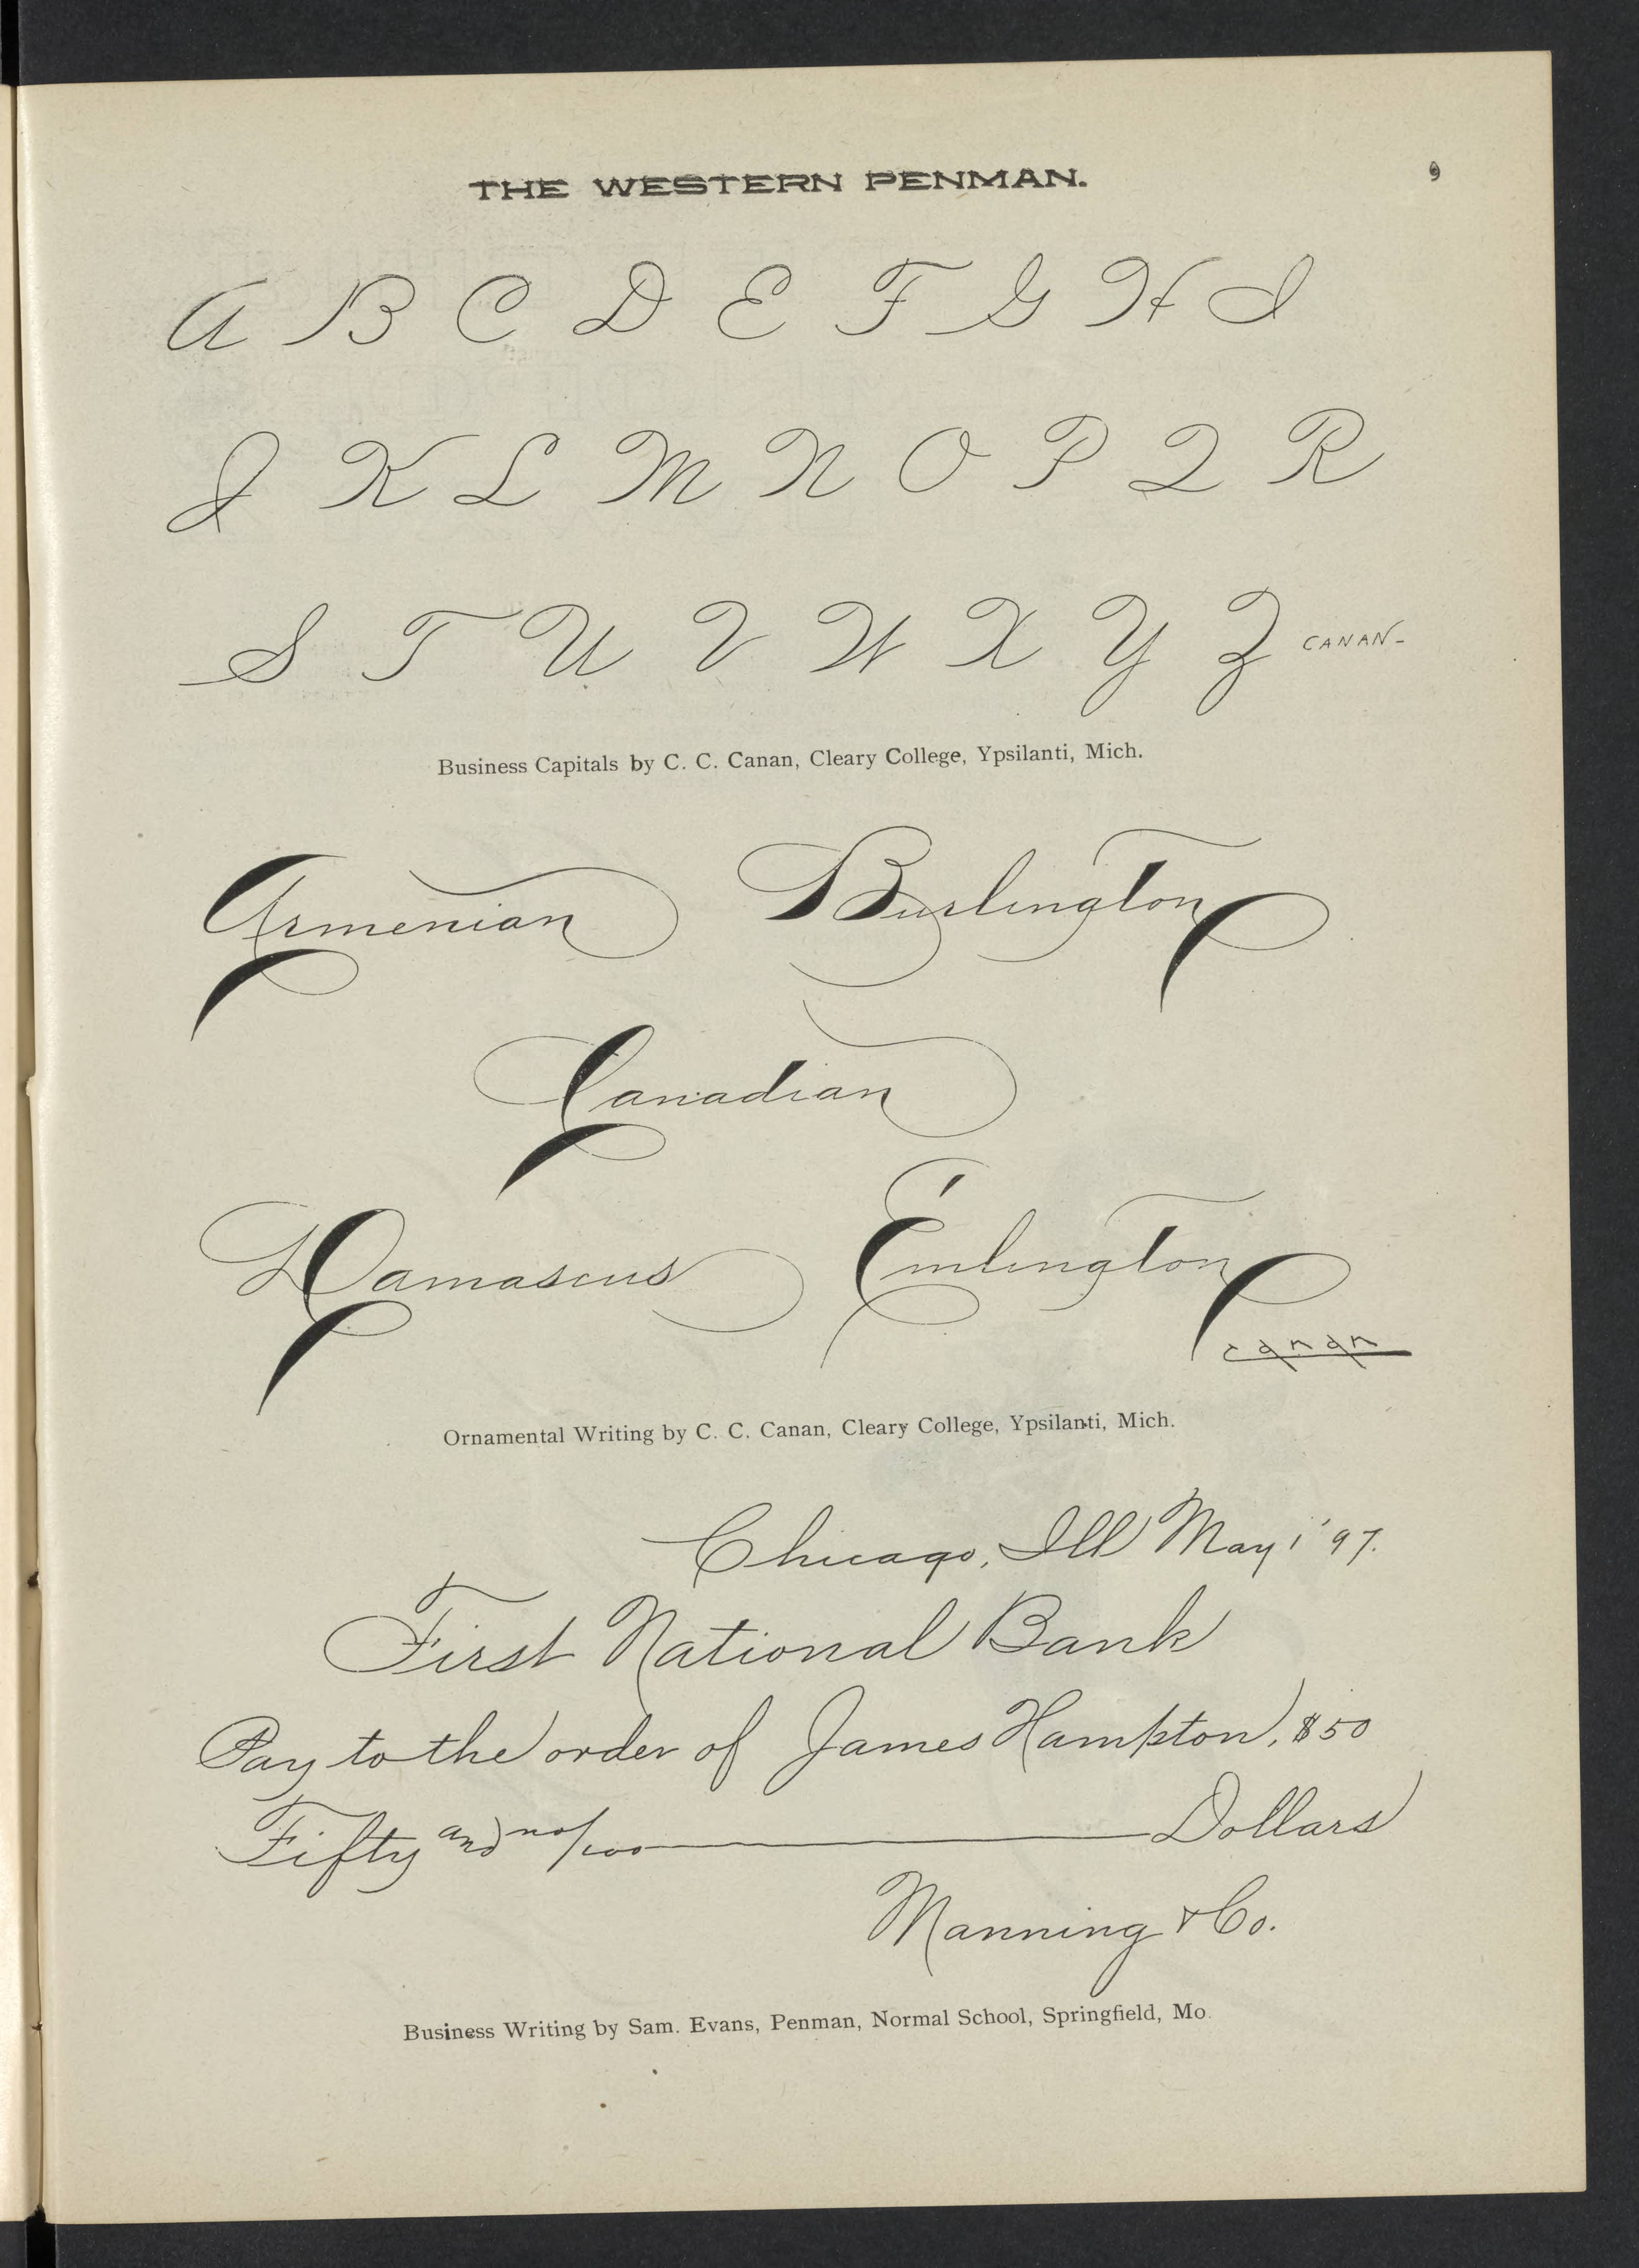 THE WESTERN PENMAN. 9
A B C D E F G H I
J K L M N O P Q R
S T U V W X Y Z CANAN-
Business Capitals by C. C. Canan, Cleary College, Ypsilanti, Mich.
Armenian Burlington
Canadian
Damascus Emlington
canan
Ornamental Writing by C. C. Canan, Cleary College, Ypsilanti, Mich.
Chicago, Ill May 1 '97.
First National Bank
Pay to the order of James Hampton, $50
Fifty and no/100 Dollars
Manning & Co.
Business Writing by Sam. Evans, Penman, Normal School, Springfield, Mo.